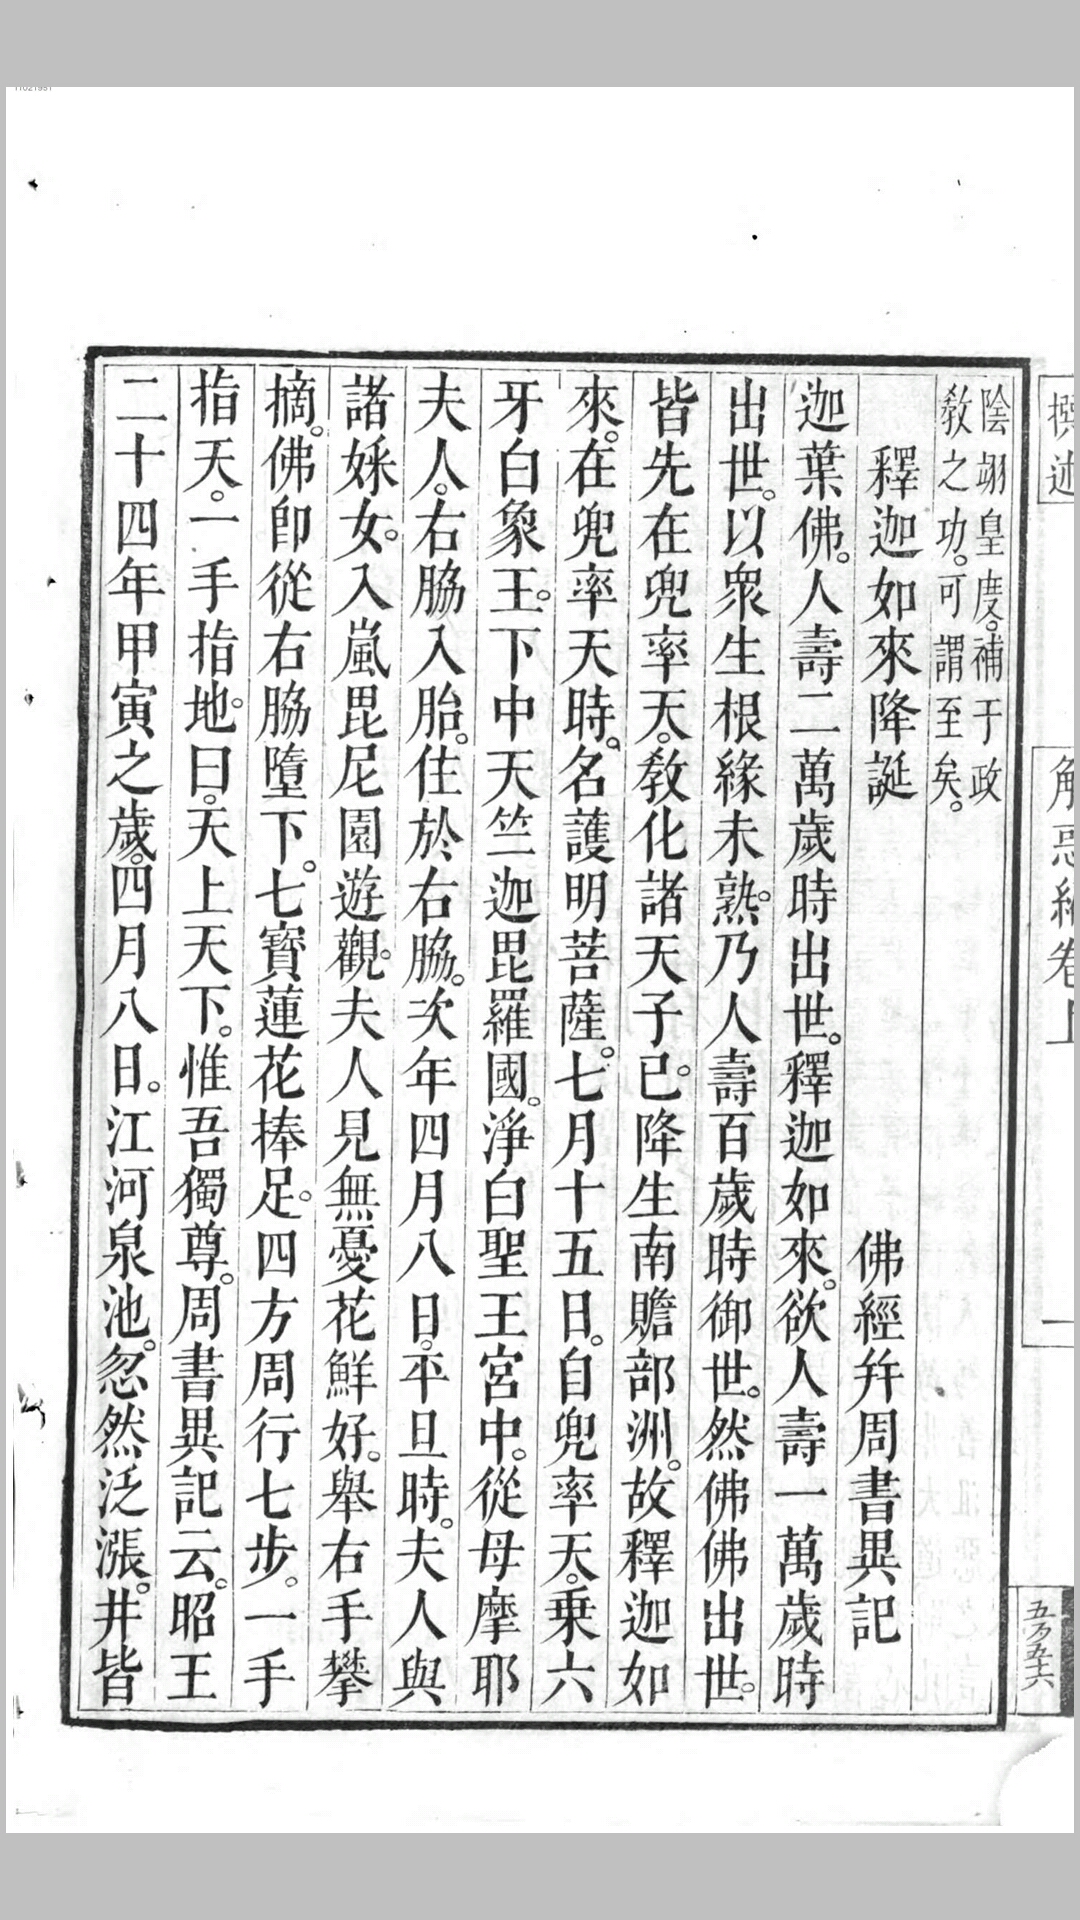 陰翊皇度。補于政
敎之功。可謂至矣。
釋迦如來降誕 佛經幷周書異記
迦葉佛。人壽二萬歲時出世。釋迦如來。欲人壽一萬歲時
出世。以衆生根緣未熟。乃人壽百歲時御世。然佛佛出世。
皆先在兜率天。敎化諸天子已。降生南贍部洲。故釋迦如
來。在兜率天時。名護明菩薩。七月十五日。自兜率天。乗六
牙白象王。下中天竺迦毘羅國。淨白聖王宮中。從母摩耶
夫人。右脇入胎。住於右脇。次年四月八日。平旦時。夫人與
諸婇女。入嵐毘尼園遊觀。夫人見無憂花鮮好。舉右手攀
摘。佛卽從右脇墮下。七寶蓮花捧足。四方周行七步。一手
指天。一手指地。曰。天上天下。惟吾獨尊。周書異記云。昭王
二十四年甲寅之歲。四月八日。江河泉池。忽然泛漲。井皆